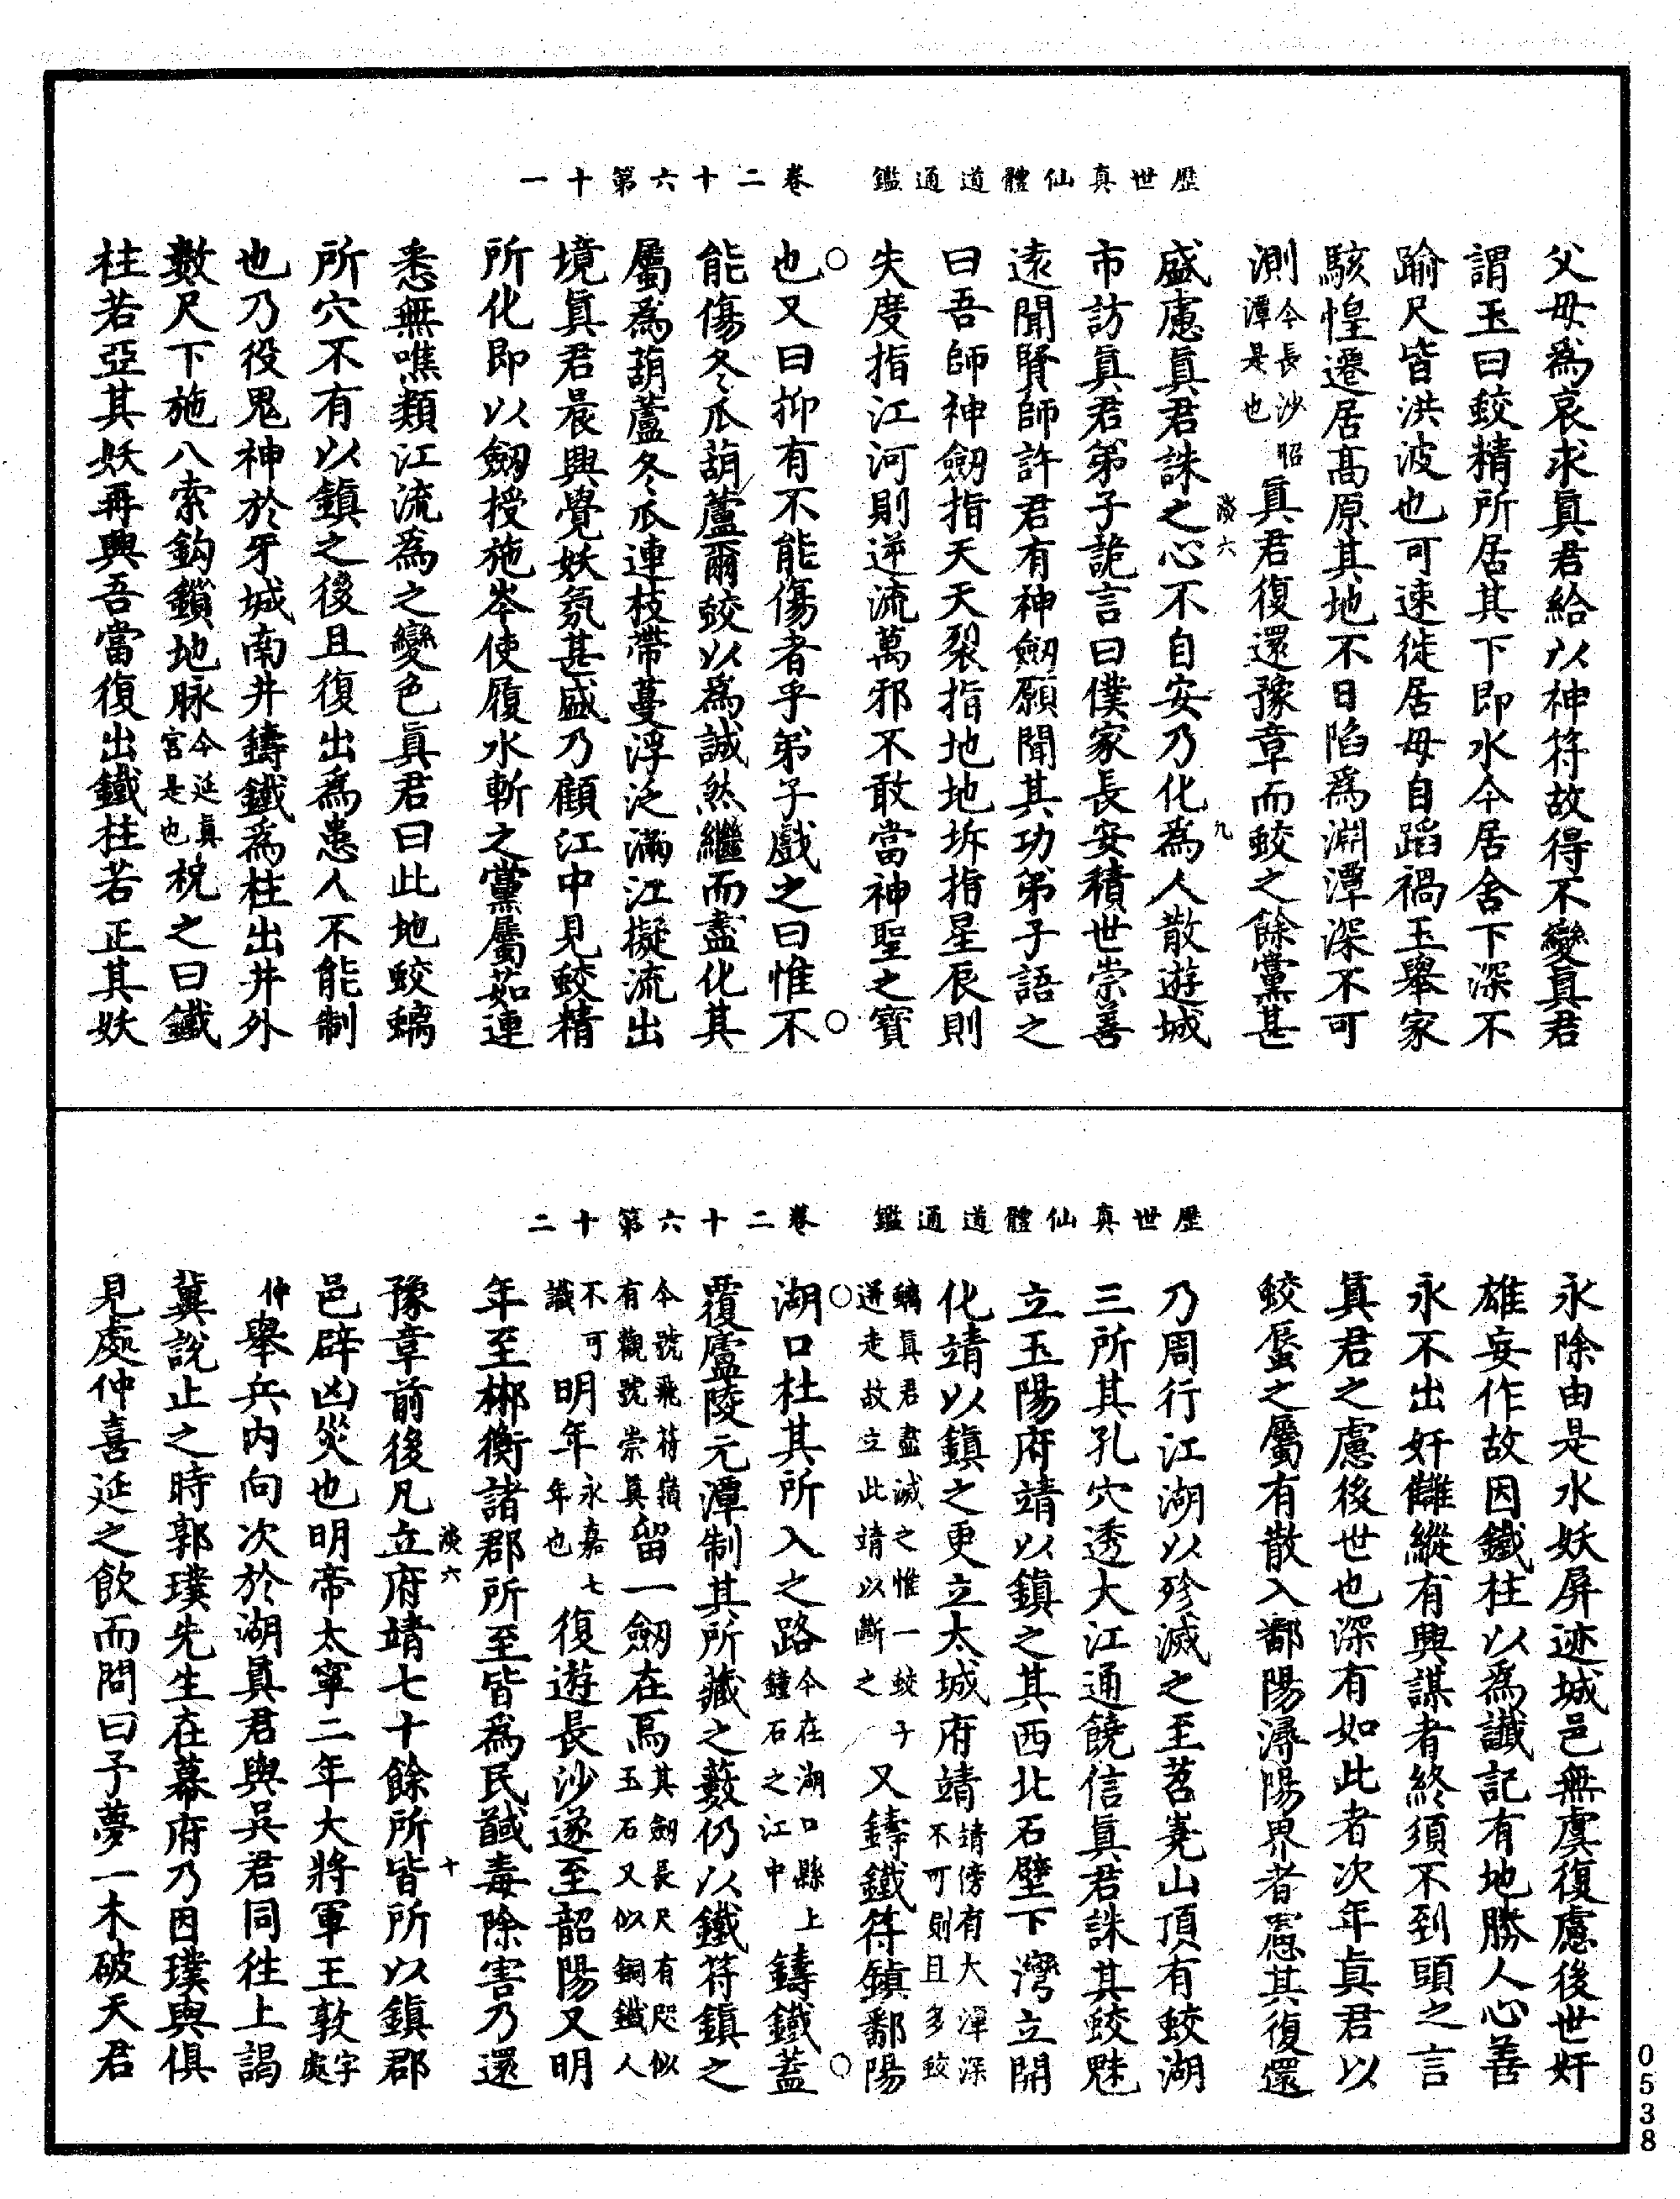 歷世真仙體道通鑑　卷二十六第十一
父母爲哀求眞君給以神符故得不變眞君
謂玉曰蛟精所居其下即水今居舍下深不
踰尺皆洪波也可速徙居毋自蹈禍玉舉家
駭惶遷居高原其地不日陷爲淵潭深不可
測今長沙昭潭是也眞君復還豫章而蛟之餘黨甚
盛慮眞君誅之心不自安乃化爲人散遊城
羨六　九
市訪眞君弟子詭言曰僕家長安積世崇善
遠聞賢師許君有神劒願聞其功弟子語之
曰吾師神劒指天天裂指地地坼指星辰則
失度指江河則逆流萬邪不敢當神聖之寶
也又曰抑有不能傷者乎弟子戲之曰惟不
能傷冬瓜葫蘆爾蛟以爲誠然繼而盡化其
屬爲葫蘆冬瓜連枝帶蔓浮泛滿江擬流出
境眞君晨興覺妖氛甚盛乃顧江中見蛟精
所化即以劒授施岑使履水斬之黨屬茹連
悉無噍類江流爲之變色眞君曰此地蛟螭
所穴不有以鎮之後且復出爲患人不能制
也乃役鬼神於牙城南井鑄鐵爲柱出井外
數尺下施八索鈎鎖地脉今延眞宮是也祝之曰鐵
柱若亞其妖再興吾當復出鐵柱若正其妖
歷世真仙體道通鑑　卷二十六第十二
永除由是水妖屏迹城邑無虞復慮後世奸
雄妄作故因鐵柱以爲讖記有地勝人心善
永不出奸讎縱有興謀者終須不到頭之言
眞君之慮後世也深有如此者次年眞君以
蛟蜃之屬有散入鄱陽潯陽界者慮其復還
乃周行江湖以殄滅之至苕嶤山頂有蛟湖
三所其孔穴透大江通饒信眞君誅其蛟魅
立玉陽府靖以鎮之其西北石壁下灣立開
化靖以鎮之更立太城府靖靖傍有大潭深不可則且多蛟
螭眞君盡滅之惟一蛟子迸走故立此靖以斷之又鑄鐵符鎮鄱陽
湖口杜其所入之路今在湖口縣上鐘石之江中鑄鐵蓋
覆廬陵元潭制其所藏之藪仍以鐵符鎮之
今號飛符嶺有觀號崇眞留一劒在焉其劒長尺有咫似玉石又似銅鐵人
不可識明年永嘉七年也復遊長沙遂至韶陽又明
年至郴衡諸郡所至皆爲民馘毒除害乃還
豫章前後凡立府靖七十餘所皆所以鎮郡
羨六　十
邑辟凶災也明帝太寧二年大將軍王敦字處
仲舉兵内向次於湖眞君與吳君同往上謁
冀說止之時郭璞先生在幕府乃因璞與俱
見處仲喜延之飲而問曰予夢一木破天君
0538